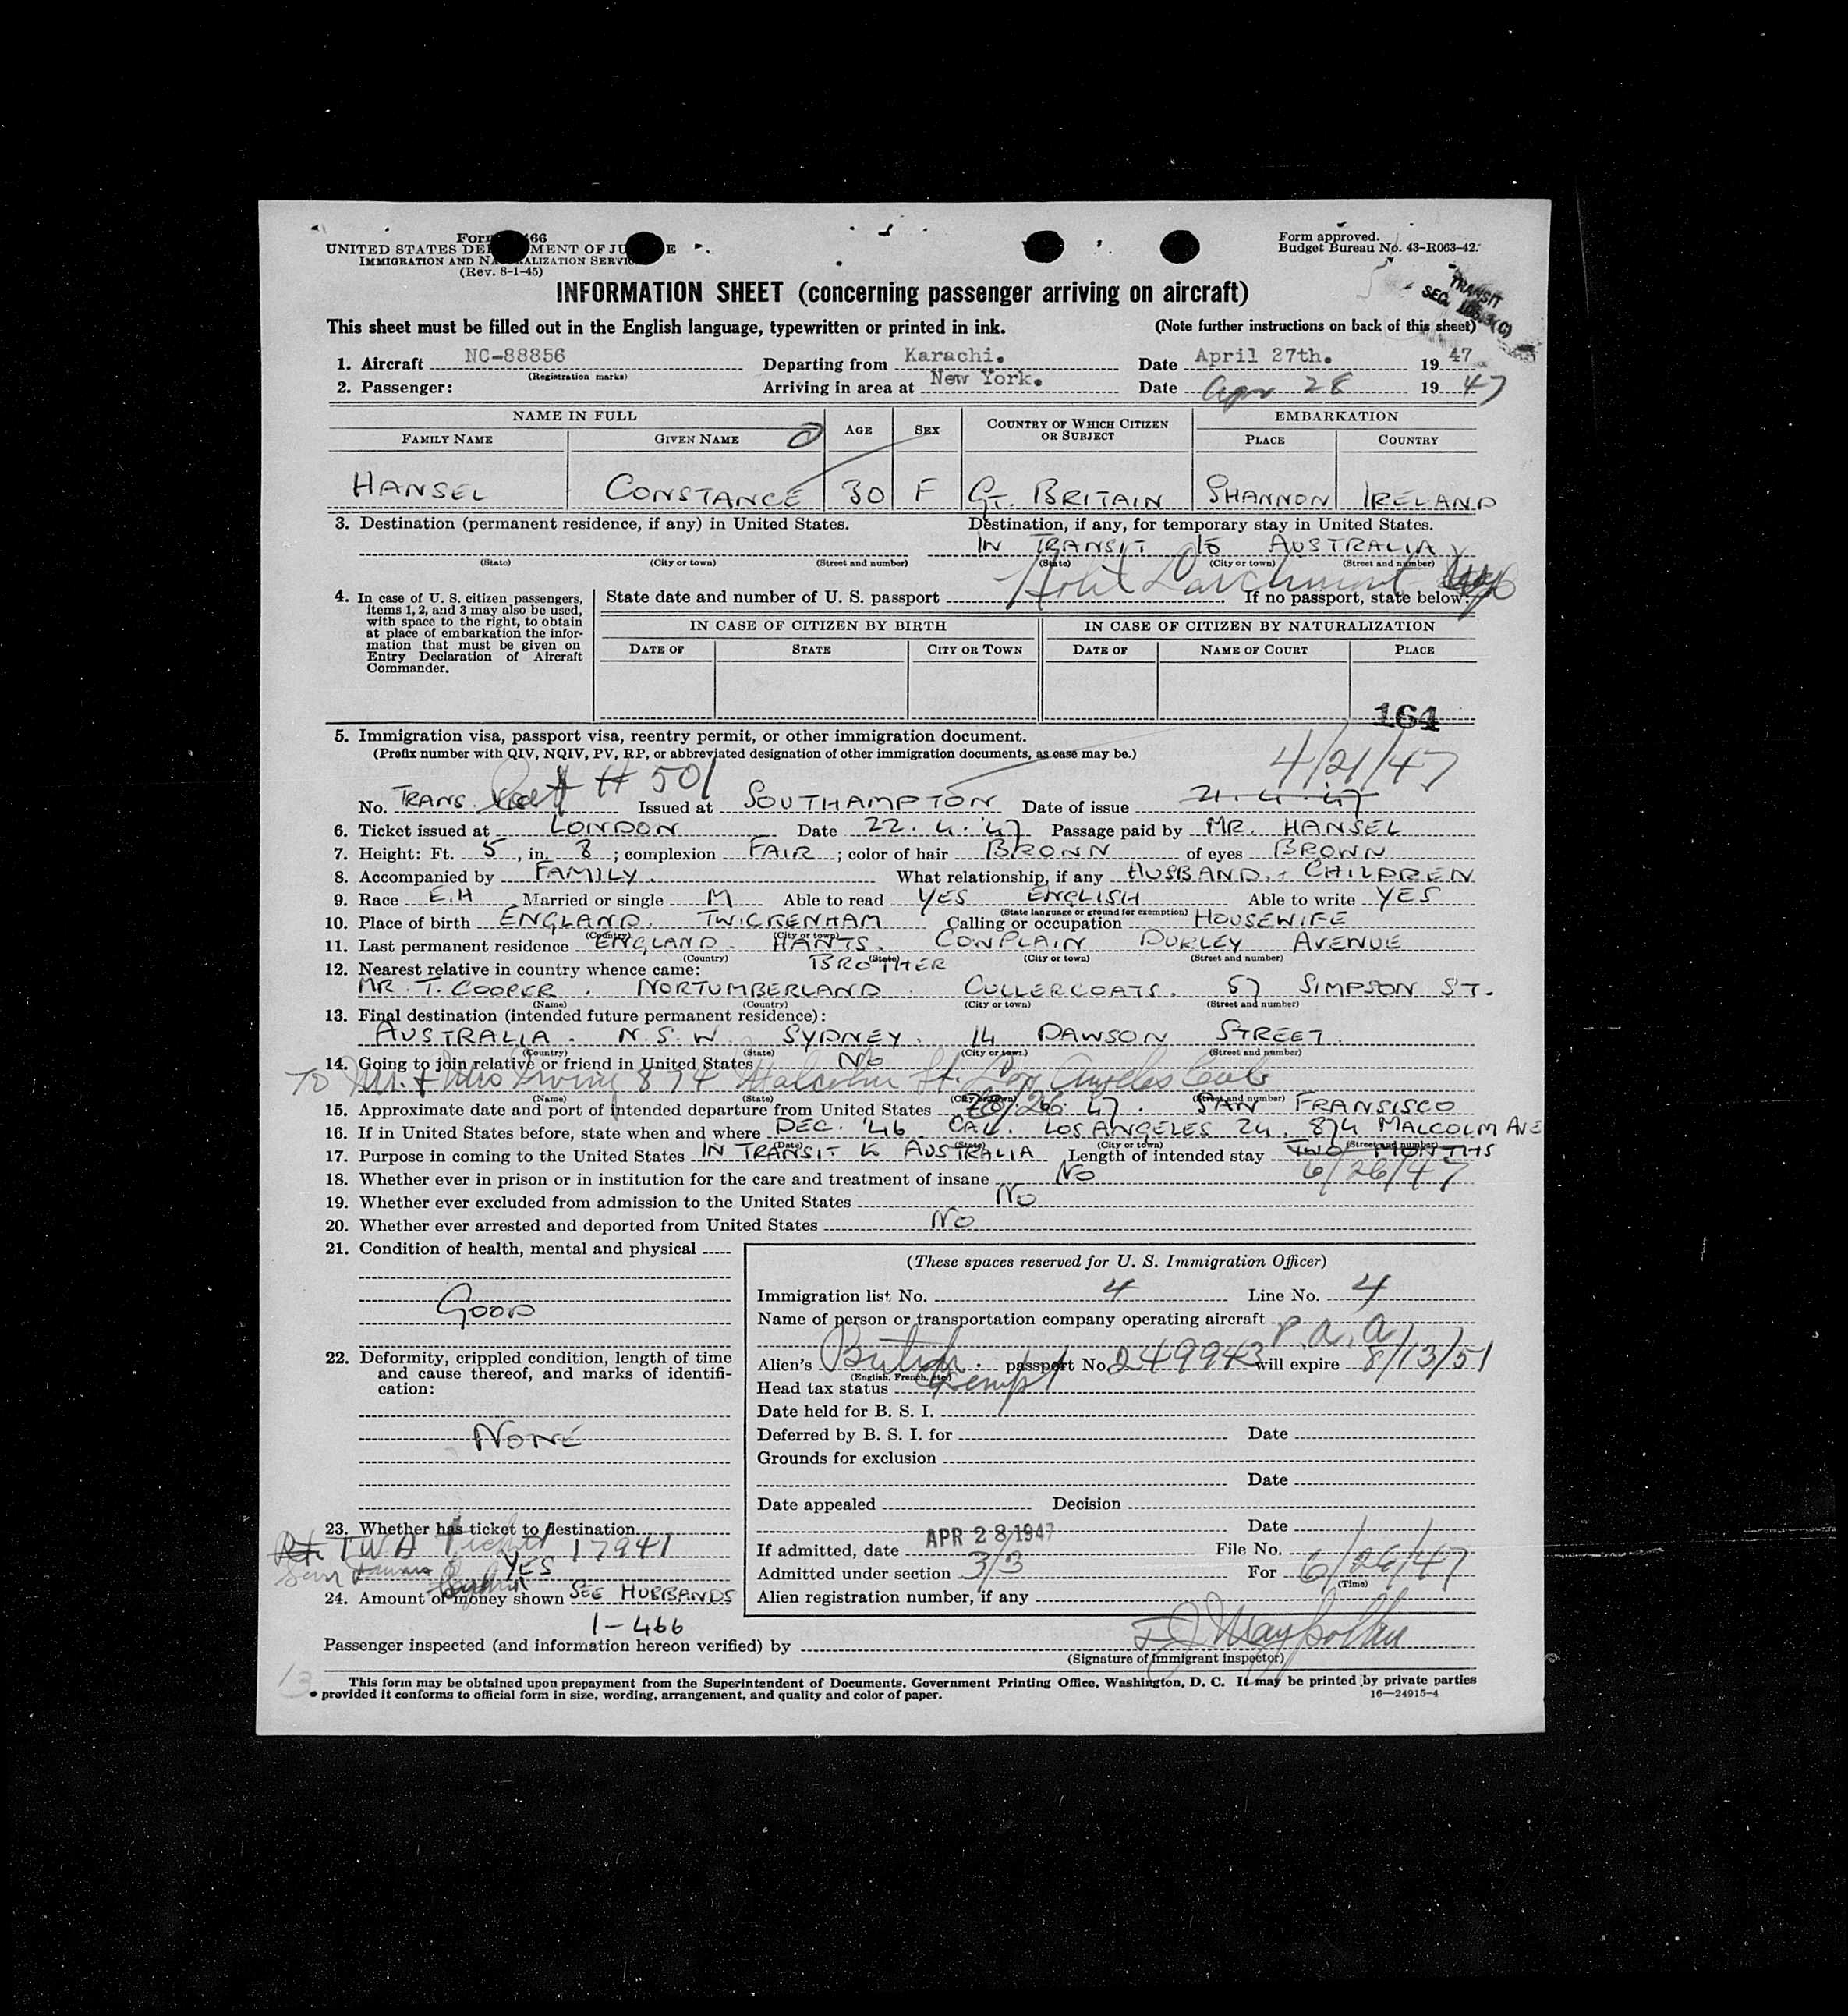 Form 466
UNITED STATES DEPARTMENT OF JUSTICE
IMMIGRATION AND NATURALIZATION SERVICE
(Rev. 8-1-45)
Form approved.
Budget Bureau No. 43-R063-42.
TRANSIT
SEC. (C)
INFORMATION SHEET (concerning passenger arriving on aircraft)
This sheet must be filled out in the English language, typewritten or printed in ink. (Note further instructions on back of this sheet)
1. Aircraft NC-88856 Departing from Karachi. Date April 27th. 19 47
(Registration marks)
2. Passenger: Arriving in area at New York. Date Apr 28 19 47
NAME IN FULL AGE SEX COUNTRY OF WHICH CITIZEN OR SUBJECT EMBARKATION
FAMILY NAME GIVEN NAME PLACE COUNTRY
HANSEL CONSTANCE 30 F GT. BRITAIN SHANNON IRELAND
3. Destination (permanent residence, if any) in United States. Destination, if any, for temporary stay in United States.
IN TRANSIT to AUSTRALIA
(State) (City or town) (Street and number) (State) (City or town) (Street and number)
Hotel Larchmont
4. In case of U. S. citizen passengers, items 1, 2, and 3 may also be used, with space to the right, to obtain at place of embarkation the information that must be given on Entry Declaration of Aircraft Commander.
State date and number of U. S. passport If no passport, state below:
IN CASE OF CITIZEN BY BIRTH IN CASE OF CITIZEN BY NATURALIZATION
DATE OF STATE CITY OR TOWN DATE OF NAME OF COURT PLACE
164
5. Immigration visa, passport visa, reentry permit, or other immigration document.
(Prefix number with QIV, NQIV, PV, RP, or abbreviated designation of other immigration documents, as case may be.)
4/21/47
No. TRANS. # 501 Issued at SOUTHAMPTON Date of issue 21.4.47
6. Ticket issued at LONDON Date 22.4.'47 Passage paid by MR. HANSEL
7. Height: Ft. 5, in. 8; complexion FAIR; color of hair BROWN of eyes BROWN
8. Accompanied by FAMILY. What relationship, if any HUSBAND + CHILDREN
9. Race E.H Married or single M Able to read YES ENGLISH Able to write YES
(State language or ground for exemption)
10. Place of birth ENGLAND. TWICKENHAM Calling or occupation HOUSEWIFE
(Country) (City or town)
11. Last permanent residence ENGLAND. HANTS. COWPLAIN DURLEY AVENUE
(Country) (State) (City or town) (Street and number)
12. Nearest relative in country whence came: BROTHER
MR. T. COOPER. NORTUMBERLAND. CULLERCOATS. 57 SIMPSON ST.
(Name) (Country) (City or town) (Street and number)
13. Final destination (intended future permanent residence):
AUSTRALIA. N.S.W. SYDNEY. 14 DAWSON STREET.
(Country) (State) (City or town) (Street and number)
14. Going to join relative or friend in United States NO
TO Mr. & Mrs Irving 874 Malcolm St. Los Angeles Calif
(Name) (State) (City or town) (Street and number)
15. Approximate date and port of intended departure from United States 47. SAN FRANSISCO
16. If in United States before, state when and where DEC. '46 CAL. LOS ANGELES 24. 874 MALCOLM AVE
(Date) (State) (City or town) (Street and number)
17. Purpose in coming to the United States IN TRANSIT to AUSTRALIA Length of intended stay TWO MONTHS
6/26/47
18. Whether ever in prison or in institution for the care and treatment of insane NO
19. Whether ever excluded from admission to the United States NO
20. Whether ever arrested and deported from United States NO
21. Condition of health, mental and physical
GOOD
22. Deformity, crippled condition, length of time and cause thereof, and marks of identification:
NONE
23. Whether has ticket to destination
TWA Ticket 17941
YES
24. Amount of money shown SEE HUSBANDS
1-466
(These spaces reserved for U. S. Immigration Officer)
Immigration list No. 4 Line No. 4
Name of person or transportation company operating aircraft P.A.A.
Alien's British passport No. 249943 will expire 8/13/51
(English, French, etc.)
Head tax status Exempt
Date held for B. S. I.
Deferred by B. S. I. for Date
Grounds for exclusion
Date
Date appealed Decision
Date
If admitted, date APR 28 1947 File No.
Admitted under section 3/3 For 6/26/47
(Time)
Alien registration number, if any
Passenger inspected (and information hereon verified) by
(Signature of immigrant inspector)
13
This form may be obtained upon prepayment from the Superintendent of Documents, Government Printing Office, Washington, D. C. It may be printed by private parties
provided it conforms to official form in size, wording, arrangement, and quality and color of paper. 16—24915-4